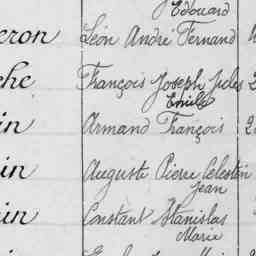 Edouard
eron Léon André Fernand
che François Joseph Jules 2
Emile
in Armand François 2
in Auguste Pierre Celestin
Jean
in Constant Stanislas
Marie